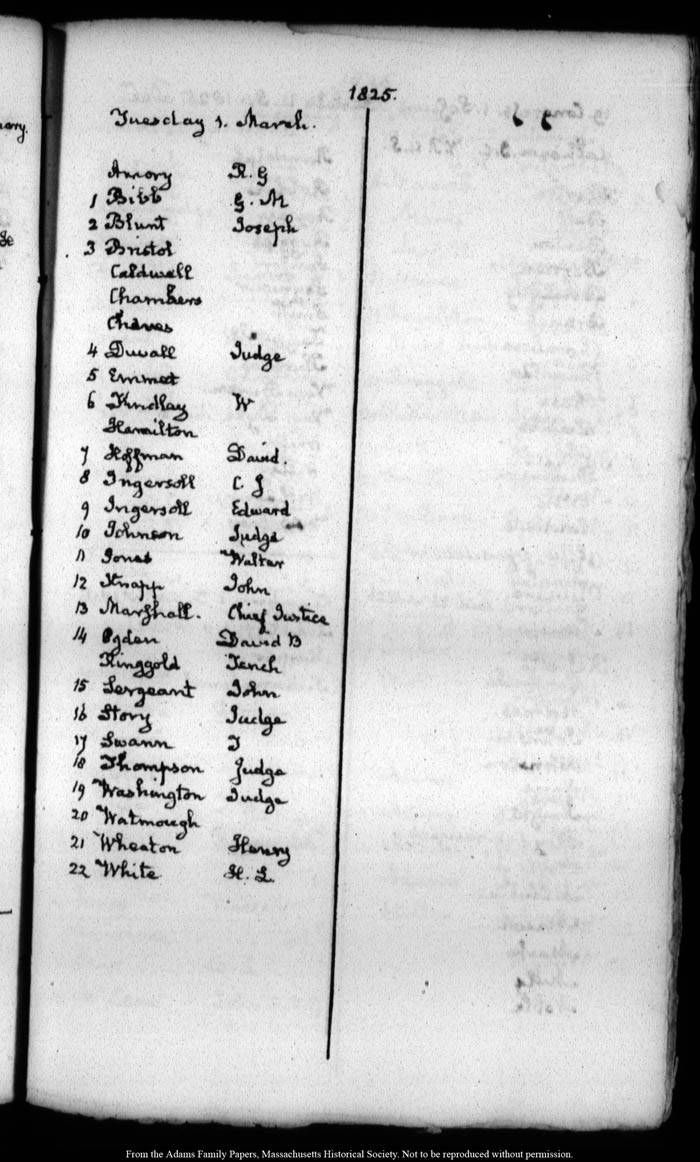 1825.
Tuesday 1. March.
Amory R. G
1 Bibb G. M
2 Blunt Joseph
3 Bristol
Caldwell
Chambers
Cheves
4 Duvall Judge
5 Emmet
6 Findlay W
Hamilton
7 Hoffman David.
8 Ingersoll C. J
9 Ingersoll Edward
10 Johnson Judge
11 Jones Walter
12 Knapp John
13 Marshall. Chief Justice
14 Ogden David B
Ringgold Tench
15 Sergeant John
16 Story Judge
17 Swann T
18 Thompson Judge
19 Washington Judge
20 Watmough
21 Wheaton Henry
22 White H. L.
From the Adams Family Papers, Massachusetts Historical Society. Not to be reproduced without permission.